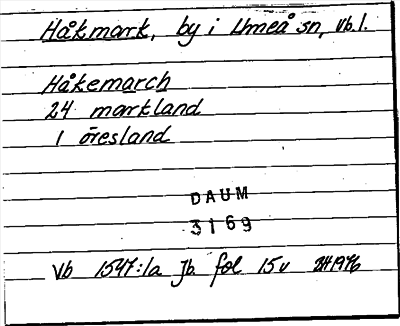 Håkmark, by i Umeå sn, Vb.l.
Håkemarch
24 markland
1 öresland
DAUM
3169
Vb 1547:1a Jb fol 15v